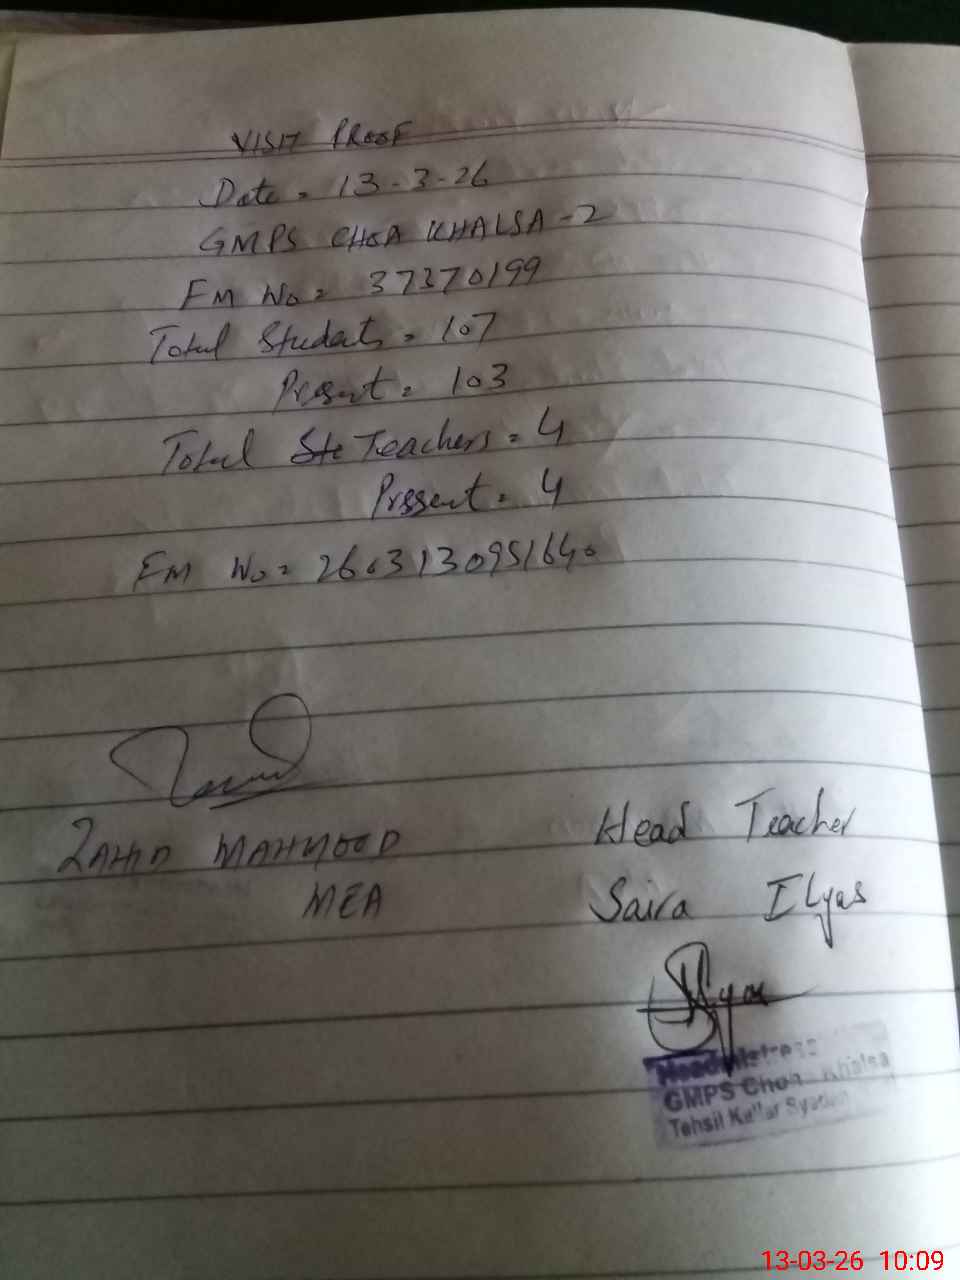 VISIT PROOF
Date = 13-3-26
GMPS CHOA KHALSA-2
EM No = 37370199
Total Students = 107
Present = 103
Total Ste Teachers = 4
Present = 4
EM No = 2603130951640
ZAHID MAHMOOD
MEA
Head Teacher
Saira Ilyas
Headmistress
GMPS Choa Khalsa
Tehsil Kallar Syedan
13-03-26 10:09